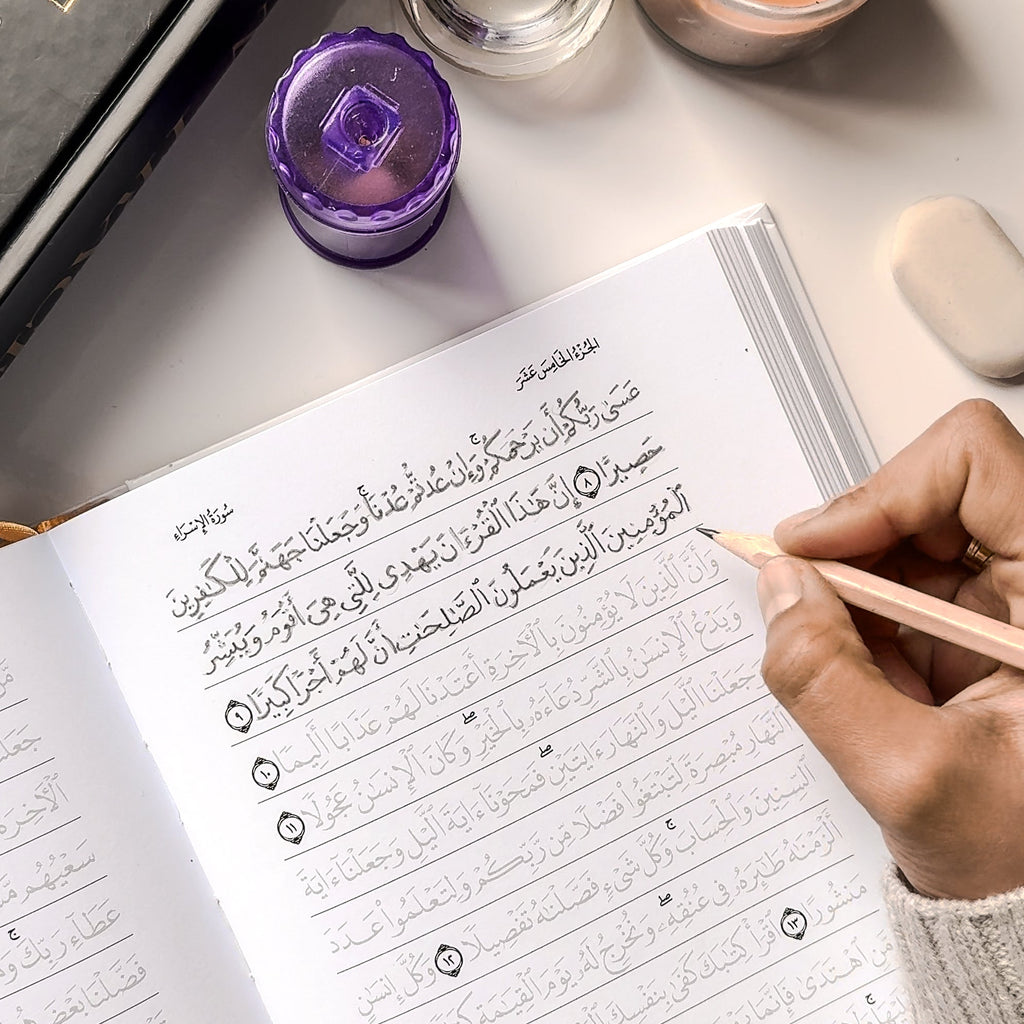 الجُزْءُ الخَامِسَ عَشَرَ
سُورَةُ الإِسْرَاءِ
عَسَىٰ رَبُّكُمْ أَن يَرْحَمَكُمْ ۚ وَإِنْ عُدتُّمْ عُدْنَا ۚ وَجَعَلْنَا جَهَنَّمَ لِلْكَٰفِرِينَ
حَصِيرًا ٨ إِنَّ هَٰذَا ٱلْقُرْءَانَ يَهْدِى لِلَّتِى هِىَ أَقْوَمُ وَيُبَشِّرُ
ٱلْمُؤْمِنِينَ ٱلَّذِينَ يَعْمَلُونَ ٱلصَّٰلِحَٰتِ أَنَّ لَهُمْ أَجْرًا كَبِيرًا ٩
وَأَنَّ ٱلَّذِينَ لَا يُؤْمِنُونَ بِٱلْءَاخِرَةِ أَعْتَدْنَا لَهُمْ عَذَابًا أَلِيمًا ١٠
وَيَدْعُ ٱلْإِنسَٰنُ بِٱلشَّرِّ دُعَآءَهُۥ بِٱلْخَيْرِ ۖ وَكَانَ ٱلْإِنسَٰنُ عَجُولًا ١١
جَعَلْنَا ٱلَّيْلَ وَٱلنَّهَارَ ءَايَتَيْنِ ۖ فَمَحَوْنَآ ءَايَةَ ٱلَّيْلِ وَجَعَلْنَآ ءَايَةَ
ٱلنَّهَارِ مُبْصِرَةً لِّتَبْتَغُوا۟ فَضْلًا مِّن رَّبِّكُمْ وَلِتَعْلَمُوا۟ عَدَدَ
ٱلسِّنِينَ وَٱلْحِسَابَ ۚ وَكُلَّ شَىْءٍ فَصَّلْنَٰهُ تَفْصِيلًا ١٢ وَكُلَّ إِنسَٰنٍ
أَلْزَمْنَٰهُ طَٰٓئِرَهُۥ فِى عُنُقِهِۦ ۖ وَنُخْرِجُ لَهُۥ يَوْمَ ٱلْقِيَٰمَةِ
مَنشُورًا ١٣ ٱقْرَأْ كِتَٰبَكَ كَفَىٰ بِنَفْسِكَ
مَّنِ ٱهْتَدَىٰ فَإِنَّمَا
ٱلْءَاخِرَةَ
سَعْيُهُم
عَطَآءِ رَبِّكَ ۚ
فَضَّلْنَا بَعْضَهُمْ